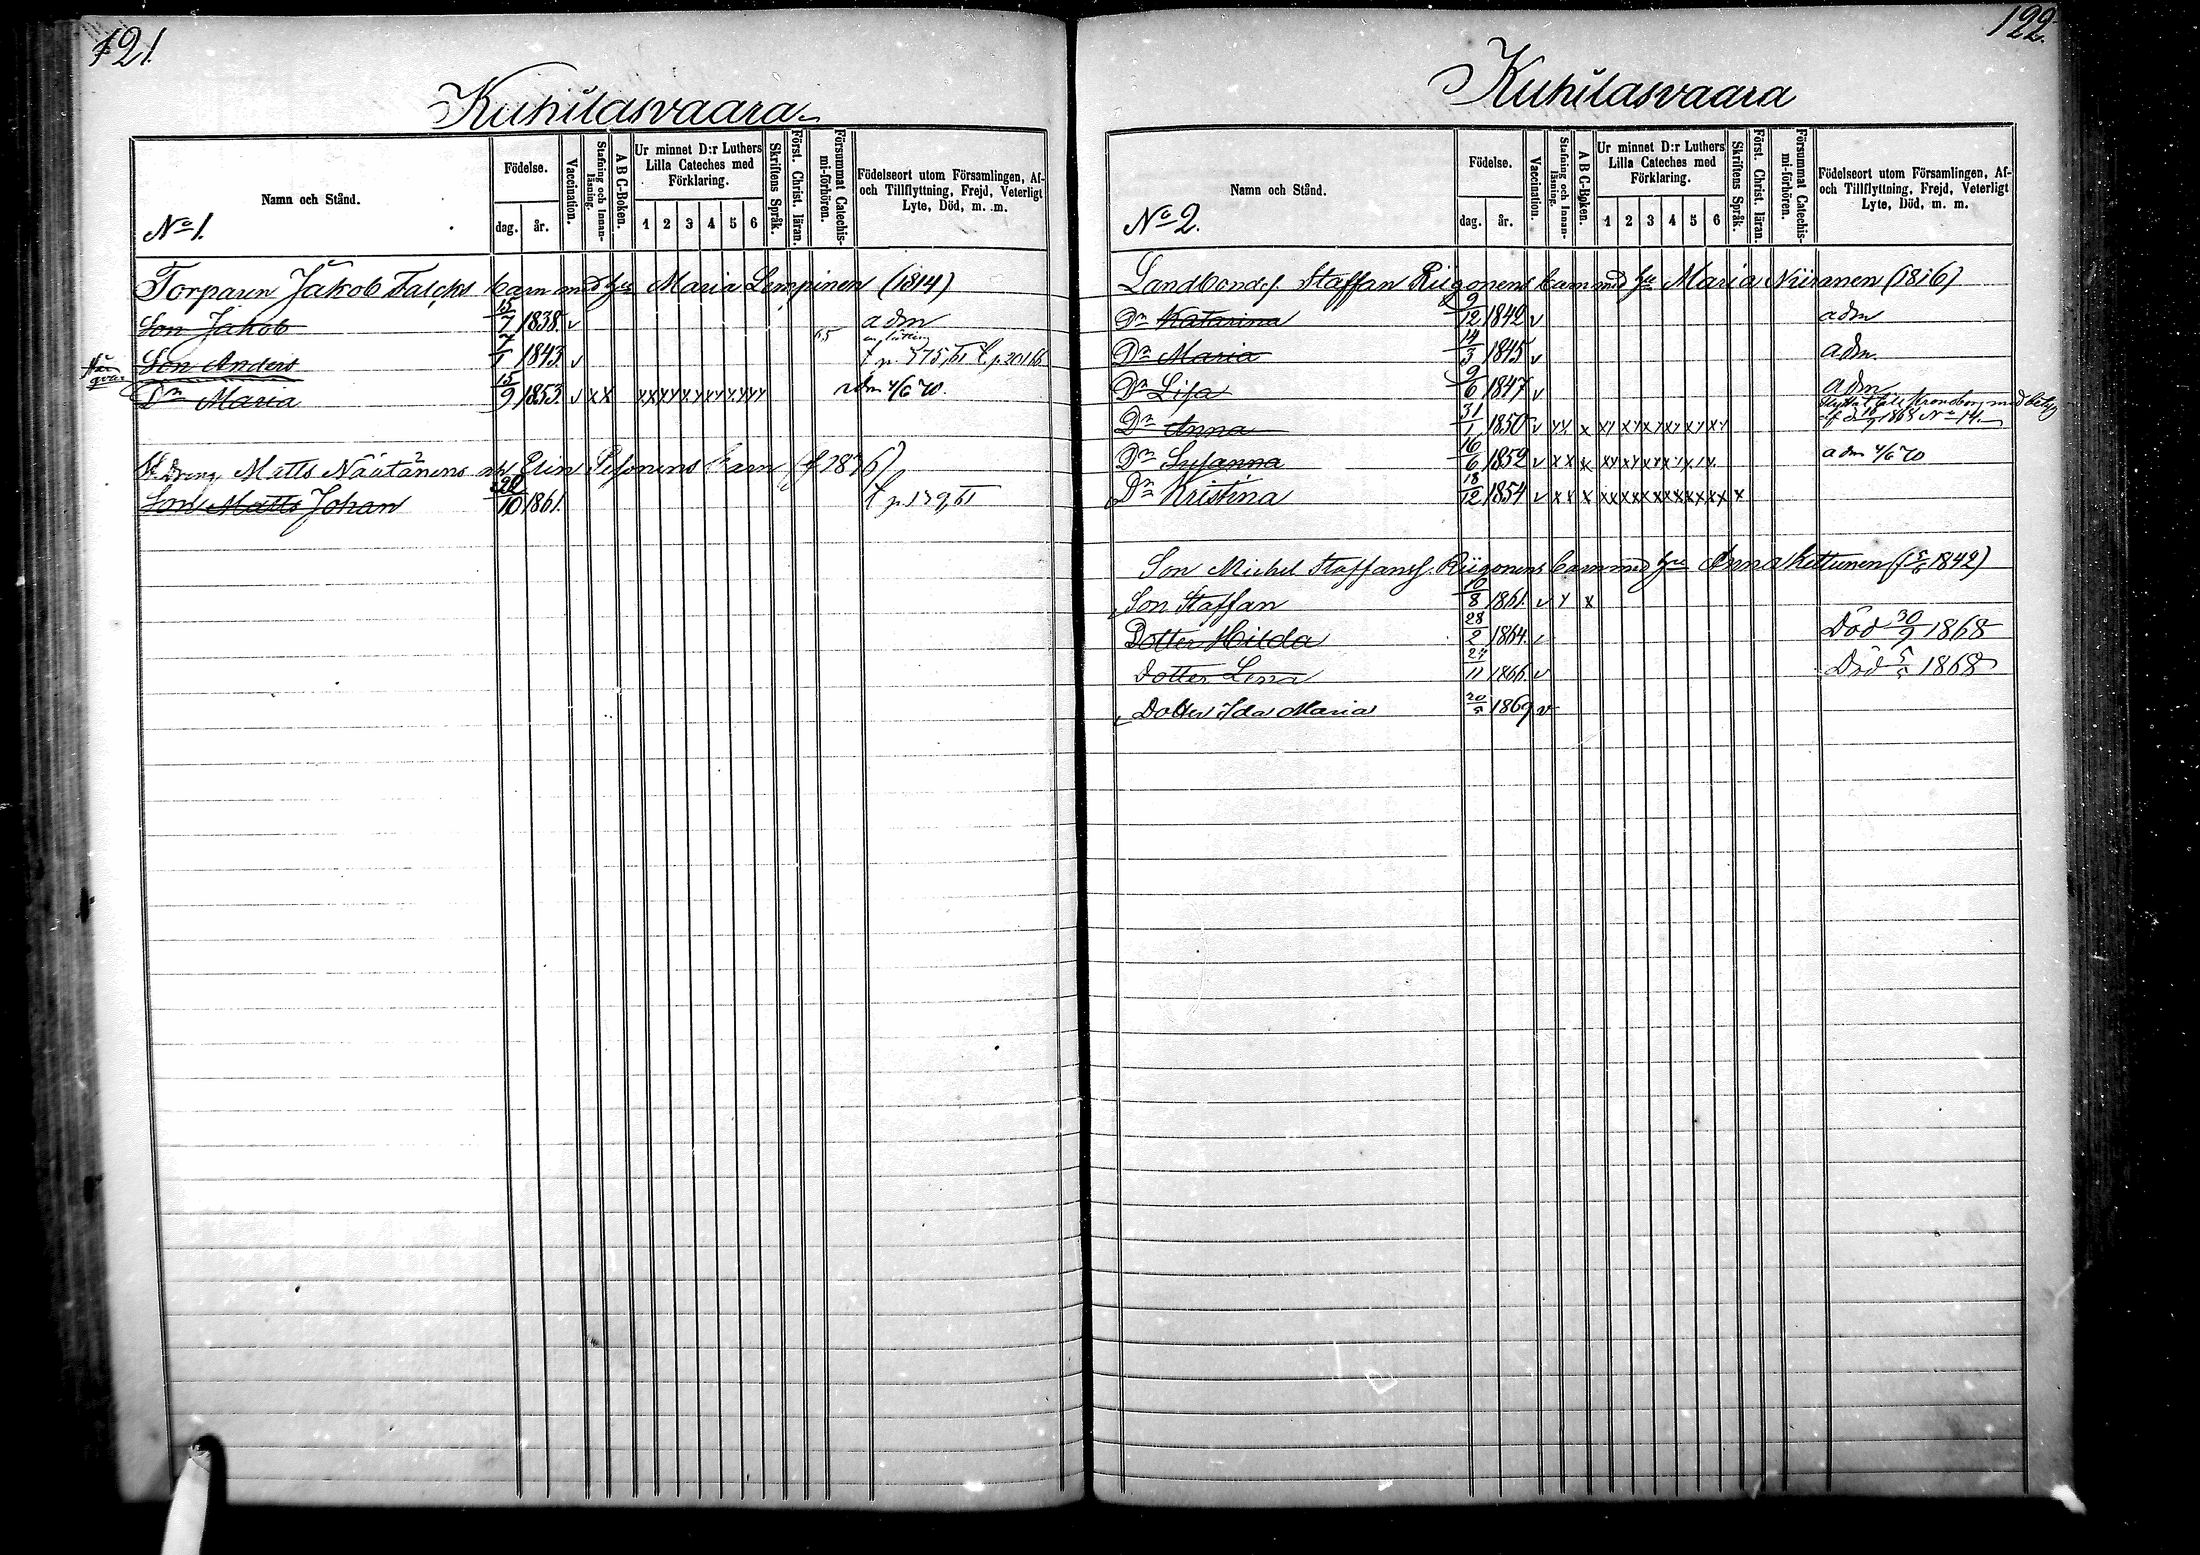 121.
Kuhilasvaara
Namn och Stånd.
No 1.
Födelse.
dag. år.
Vaccination.
Stafning och Innan-läsning.
A B C-Boken.
Ur minnet D:r Luthers
Lilla Cateches med
Förklaring.
1 2 3 4 5 6
Skriftens Språk.
Först. Christ. läran.
Försummat Catechis-mi-förhören.
Födelseort utom Församlingen, Af-
och Tillflyttning, Frejd, Veterligt
Lyte, Död, m. m.
Torparen Jakob Falcks barn med hu Maria Lempinen (1814)
Son Jakob 15/7 1838. v adm
Son Anders 7/1 1843. v 65
Dr Maria 15/9 1853 v x x x x x x x x x x x x x adm 4/6 70.
Matts Näätänens Elin Pesonens barn
Son Matts Johan 1861.
122.
Kuhilasvaara
Namn och Stånd.
No 2.
Födelse.
dag. år.
Vaccination.
Stafning och Innan-läsning.
A B C-Boken.
Ur minnet D:r Luthers
Lilla Cateches med
Förklaring.
1 2 3 4 5 6
Skriftens Språk.
Först. Christ. läran.
Försummat Catechis-mi-förhören.
Födelseort utom Församlingen, Af-
och Tillflyttning, Frejd, Veterligt
Lyte, Död, m. m.
Landbond. f. Staffan Riigonens barn med hu Maria Niiranen (1816)
Dr Katarina 9/12 1842 v adm
Dr Maria 14/3 1845 v adm.
Dr Lisa 9/6 1847 v adm
Dr Anna 31/1 1850 v x x x x x x x x x x x x x x x 1868 No 14.
Dr Susanna 16/6 1852 v x x x x x x x x x x x x x x adm 4/6 70
Dr Kristina 18/12 1854 v x x x x x x x x x x x x x x x x
Son Michel Staffanss. Riigonens barn med hu Anna Kettunen 1842)
Son Staffan 10/8 1861. v x x
Dotter Hilda 28/2 1864. v Död 30/9 1868
Dotter Lena 27/11 1866 v Död 1868
Dotter Ida Maria 20/5 1869 v